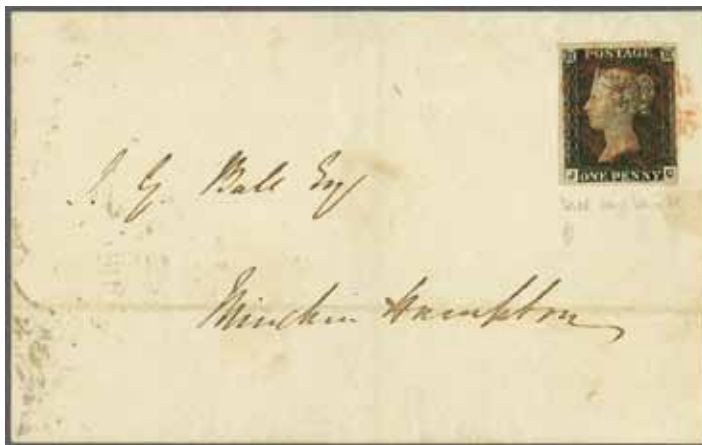 POSTAGE
J C
ONE PENNY
J. G. Ball Esq
Minchin Hampton